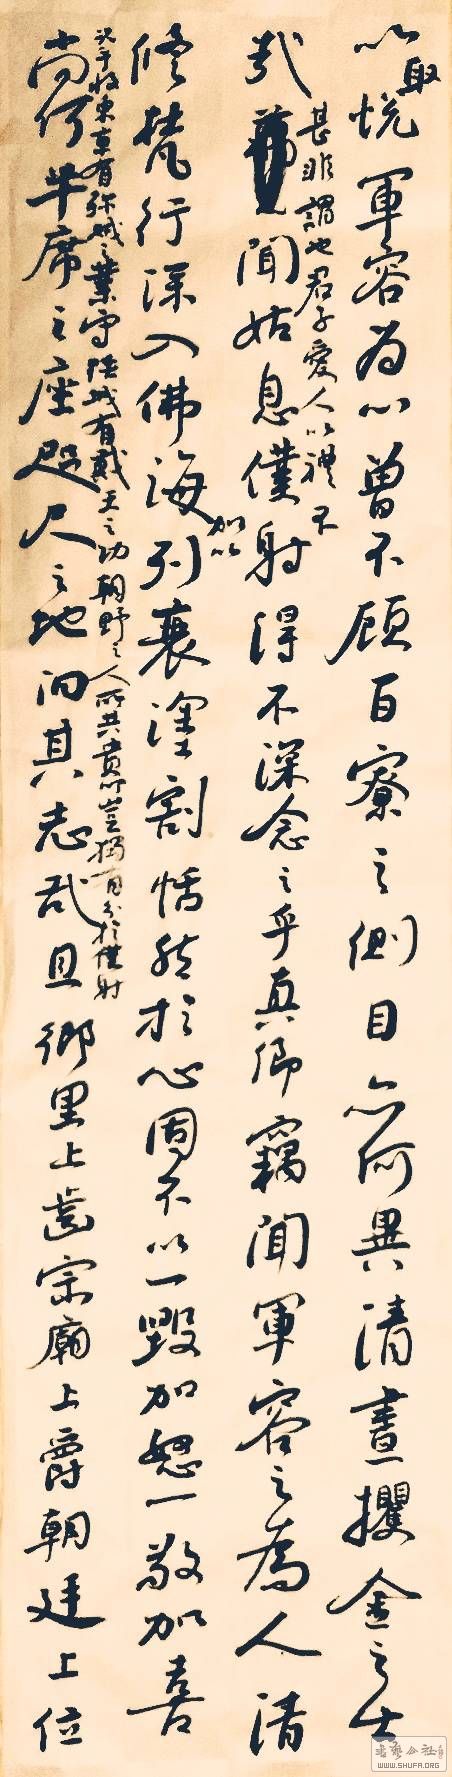 以取悅軍容為心曾不顧百寮之側目亦何異清晝攫金之士
甚非謂也君子愛人以禮不
哉聞姑息僕射得不深念之乎真卿竊聞軍容之為人清
加以
修梵行深入佛海利衰塗割恬然於心固不以一毀加怒一敬加喜
況乎收東京有殄賊之業守陝城有戴天之功朝野之人所共貴仰豈獨有分於僕射
尚何半席之座咫尺之地汩其志哉且鄉里上齒宗廟上爵朝廷上位
WWW.SHUFA.ORG